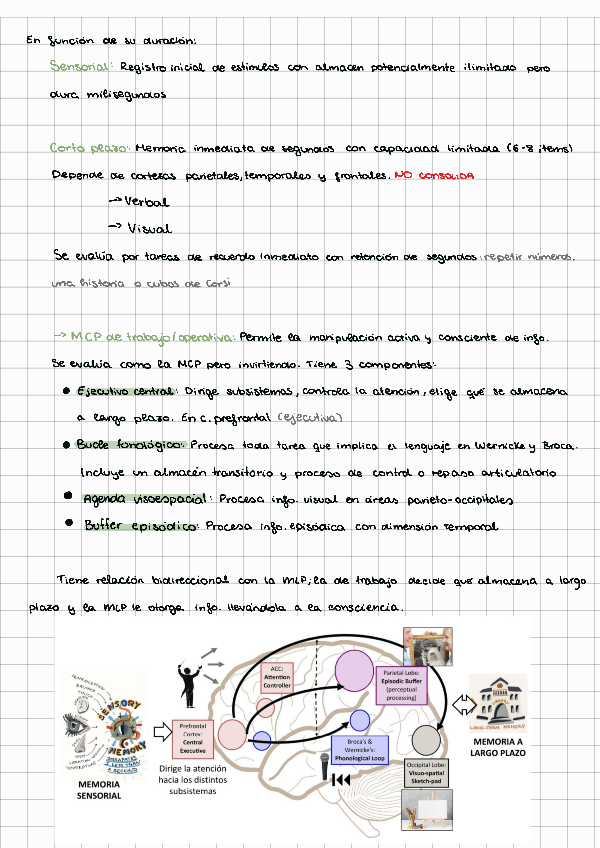 En función de su duración:
Sensorial: Registro inicial de estímulos con almacen potencialmente ilimitado pero
dura milisegundos
Corto plazo: Memoria inmediata de segundos con capacidad limitada (6-8 items)
Depende de cortezas parietales, temporales y frontales. NO CONSOLIDA
→ Verbal
→ Visual
Se evalúa por tareas de recuerdo inmediato con retención de segundos: repetir números,
una historia o cubos de Corsi
→ MCP de trabajo/operativa: Permite la manipulación activa y consciente de info.
Se evalúa como la MCP pero invirtiendo. Tiene 3 componentes:
● Ejecutivo central: Dirige subsistemas, controla la atención, elige que se almacena
a largo plazo. En c. prefrontal (ejecutiva)
● Bucle fonológico: Procesa toda tarea que implica el lenguaje en Wernicke y Broca.
Incluye un almacén transitorio y proceso de control o repaso articulatorio
● Agenda visoespacial: Procesa info. visual en áreas parieto-occipitales
● Buffer episódico: Procesa info. episódica con dimensión temporal
Tiene relación bidireccional con la MLP; la de trabajo decide que almacena a largo
plazo y la MLP le otorga info. llevándola a la consciencia.
ACC:
Attention
Controller
Parietal Lobe:
Episodic Buffer
(perceptual
processing)
Prefrontal
Cortex:
Central
Executive
Broca's &
Wernicke's:
Phonological Loop
Occipital Lobe:
Visuo-spatial
Sketch-pad
Dirige la atención
hacia los distintos
subsistemas
SENSORY
MEMORY
MEMORIA
SENSORIAL
LONG-TERM MEMORY
MEMORIA A
LARGO PLAZO